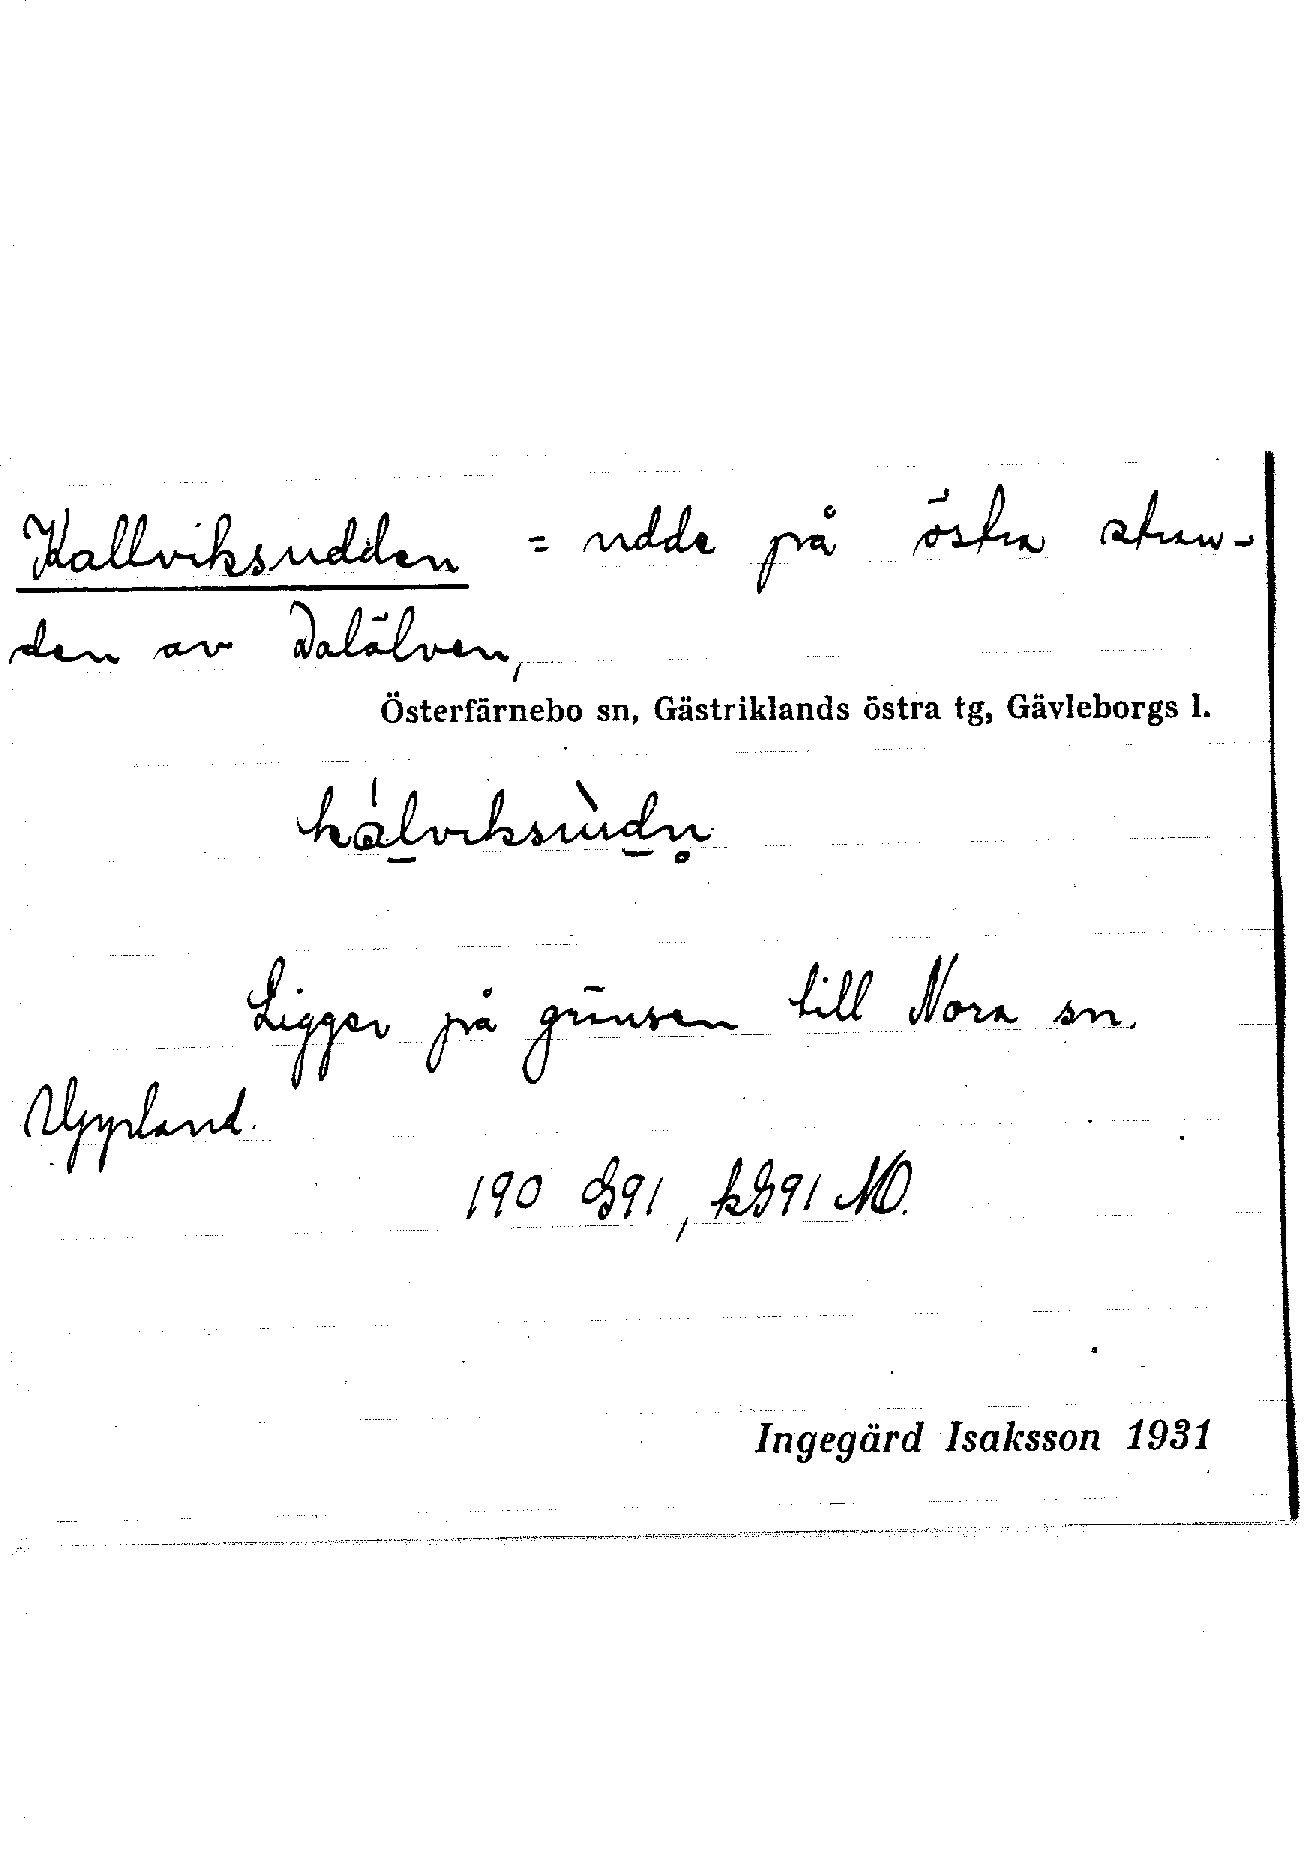 Kallviksudden = udde på östra stran-
den av Dalälven,
Österfärnebo sn, Gästriklands östra tg, Gävleborgs l.
kálviksùdn̥
Ligger på gränsen till Nora sn.
Uppland.
190 G91, kG91 NO.
Ingegärd Isaksson 1931